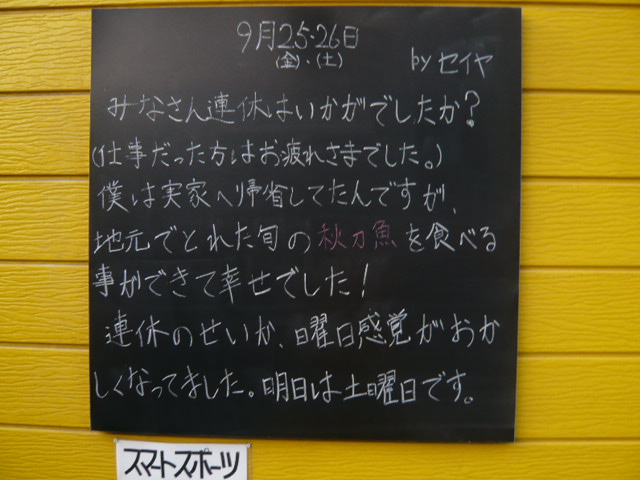 9月25・26日
(金)・(土)
byセイヤ
みなさん連休はいかがでしたか?
(仕事だった方はお疲れさまでした。)
僕は実家へり帰省してたんですが、
地元でとれた旬の秋刀魚を食べる
事ができて幸せでした!
連休のせいか、曜日感覚がおか
しくなってました。明日は土曜日です。
スマートスポーツ